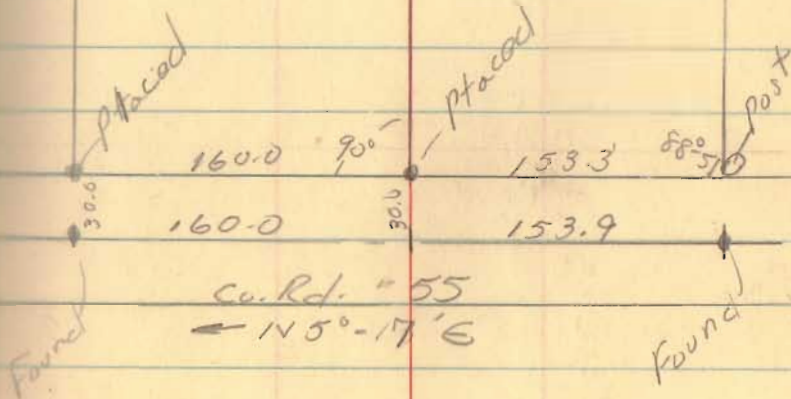 Placed
Placed
post
160.0 90° 153.3 88°-51
30.0 30.0
160.0 153.9
Co. Rd. "55
← N 5°-17' E
Found
Found